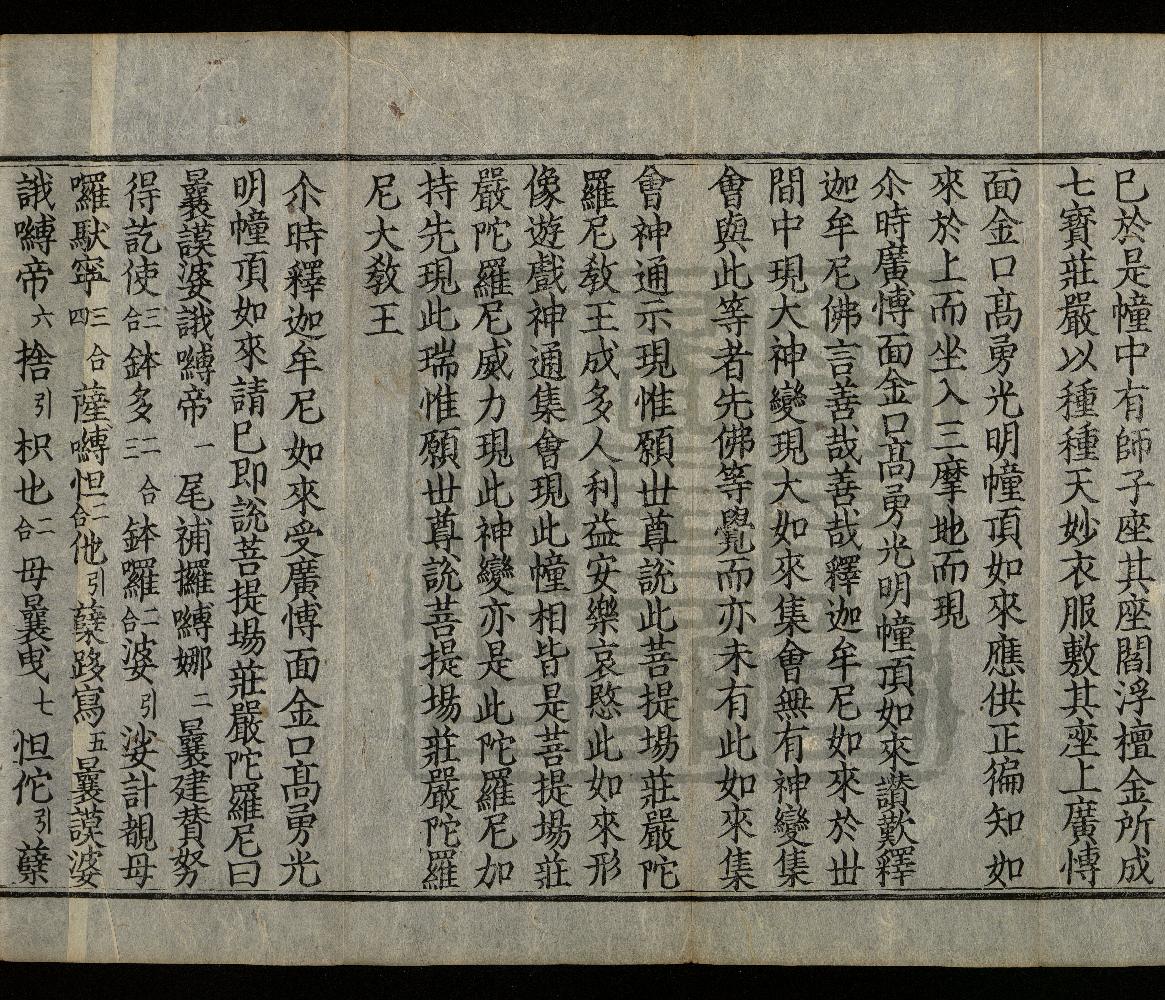 已於是幢中有師子座其座閻浮檀金所成
七寶莊嚴以種種天妙衣服敷其座上廣愽
面金口髙勇光明幢頂如來應供正徧知如
來於上而坐入三摩地而現
尒時廣愽面金口髙勇光明幢頂如來讃歎釋
迦牟尼佛言善哉善哉釋迦牟尼如來於丗
間中現大神變現大如來集會無有神變集
會與此等者先佛等覺而亦未有此如來集
會神通示現惟願丗尊說此菩提場莊嚴陀
羅尼教王成多人利益安樂哀愍此如來形
像遊戲神通集會現此幢相皆是菩提場莊
嚴陀羅尼威力現此神變亦是此陀羅尼加
持先現此瑞惟願丗尊說菩提場莊嚴陀羅
尼大教王
尒時釋迦牟尼如來受廣愽面金口髙勇光
明幢頂如來請已即說菩提場莊嚴陀羅尼曰
曩謨婆誐嚩帝一尾補攞嚩娜二曩建賛努
得訖使三合鉢多二合三鉢囉二合婆引娑計覩母
囉馱寧三合四薩嚩怛二合他引蘖跢寫五曩謨婆
誐嚩帝六捨引枳也二合母曩曵七怛佗引蘖